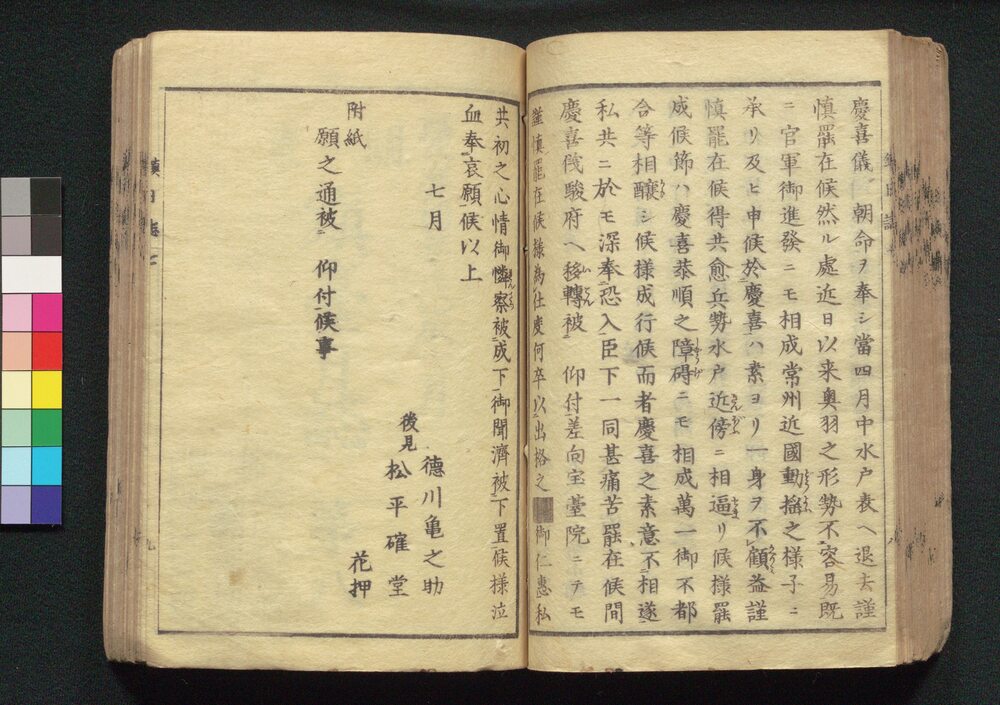 慶喜儀 朝命ヲ奉シ當四月中水戸表ヘ退去謹
慎罷在候然ル處近日以来奥羽之形勢不容易既
ニ 官軍御進發ニモ相成常州近國動揺之様子ニ
承リ及ヒ申候於慶喜ハ素ヨリ一身ヲ不顧益謹
慎罷在候得共愈兵勢水戸近傍ニ相逼リ候様罷
成候節ハ慶喜恭順之障碍ニモ相成萬一御不都
合等相釀シ候様成行候而者慶喜之素意不相遂
私共ニ於モ深奉恐入臣下一同甚痛苦罷在候間
慶喜儀駿府ヘ移轉被 仰付差向宝臺院ニテモ
謹慎罷在候様為仕度何卒以出格之 御仁惠私
共初之心情御憐察被成下御聞濟被下置候様泣
血奉哀願候以上
七月
德川亀之助
後見
松平確堂
花押
附紙
願之通被 仰付候事